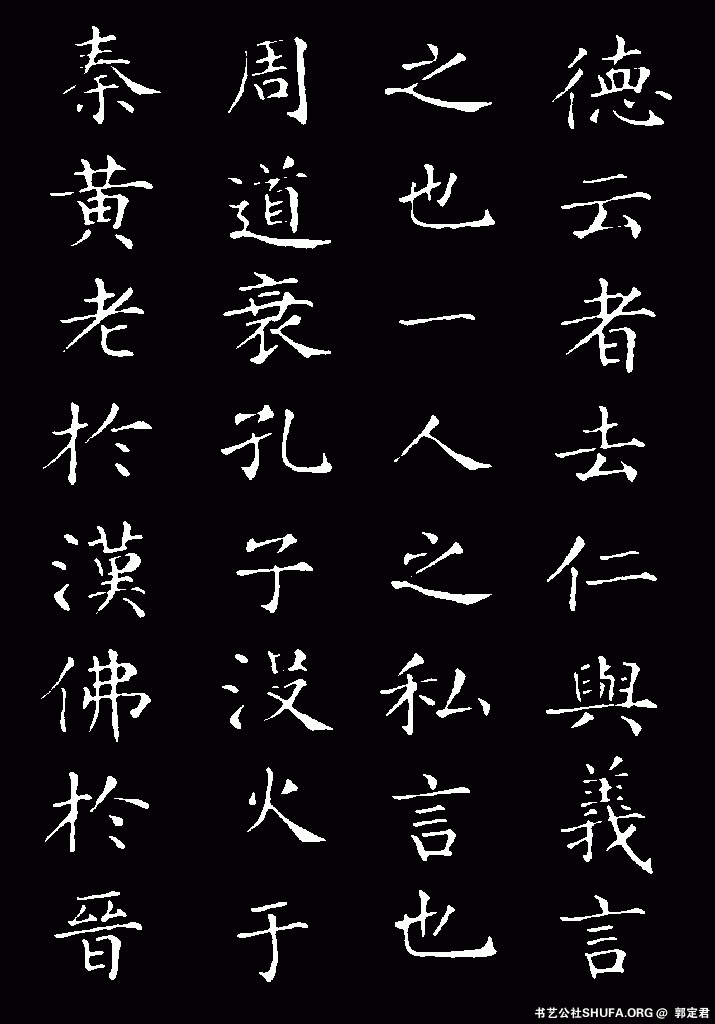 德云者去仁與義言
之也一人之私言也
周道衰孔子没火于
秦黄老於漢佛於晉
书艺公社SHUFA.ORG @ 郭定君